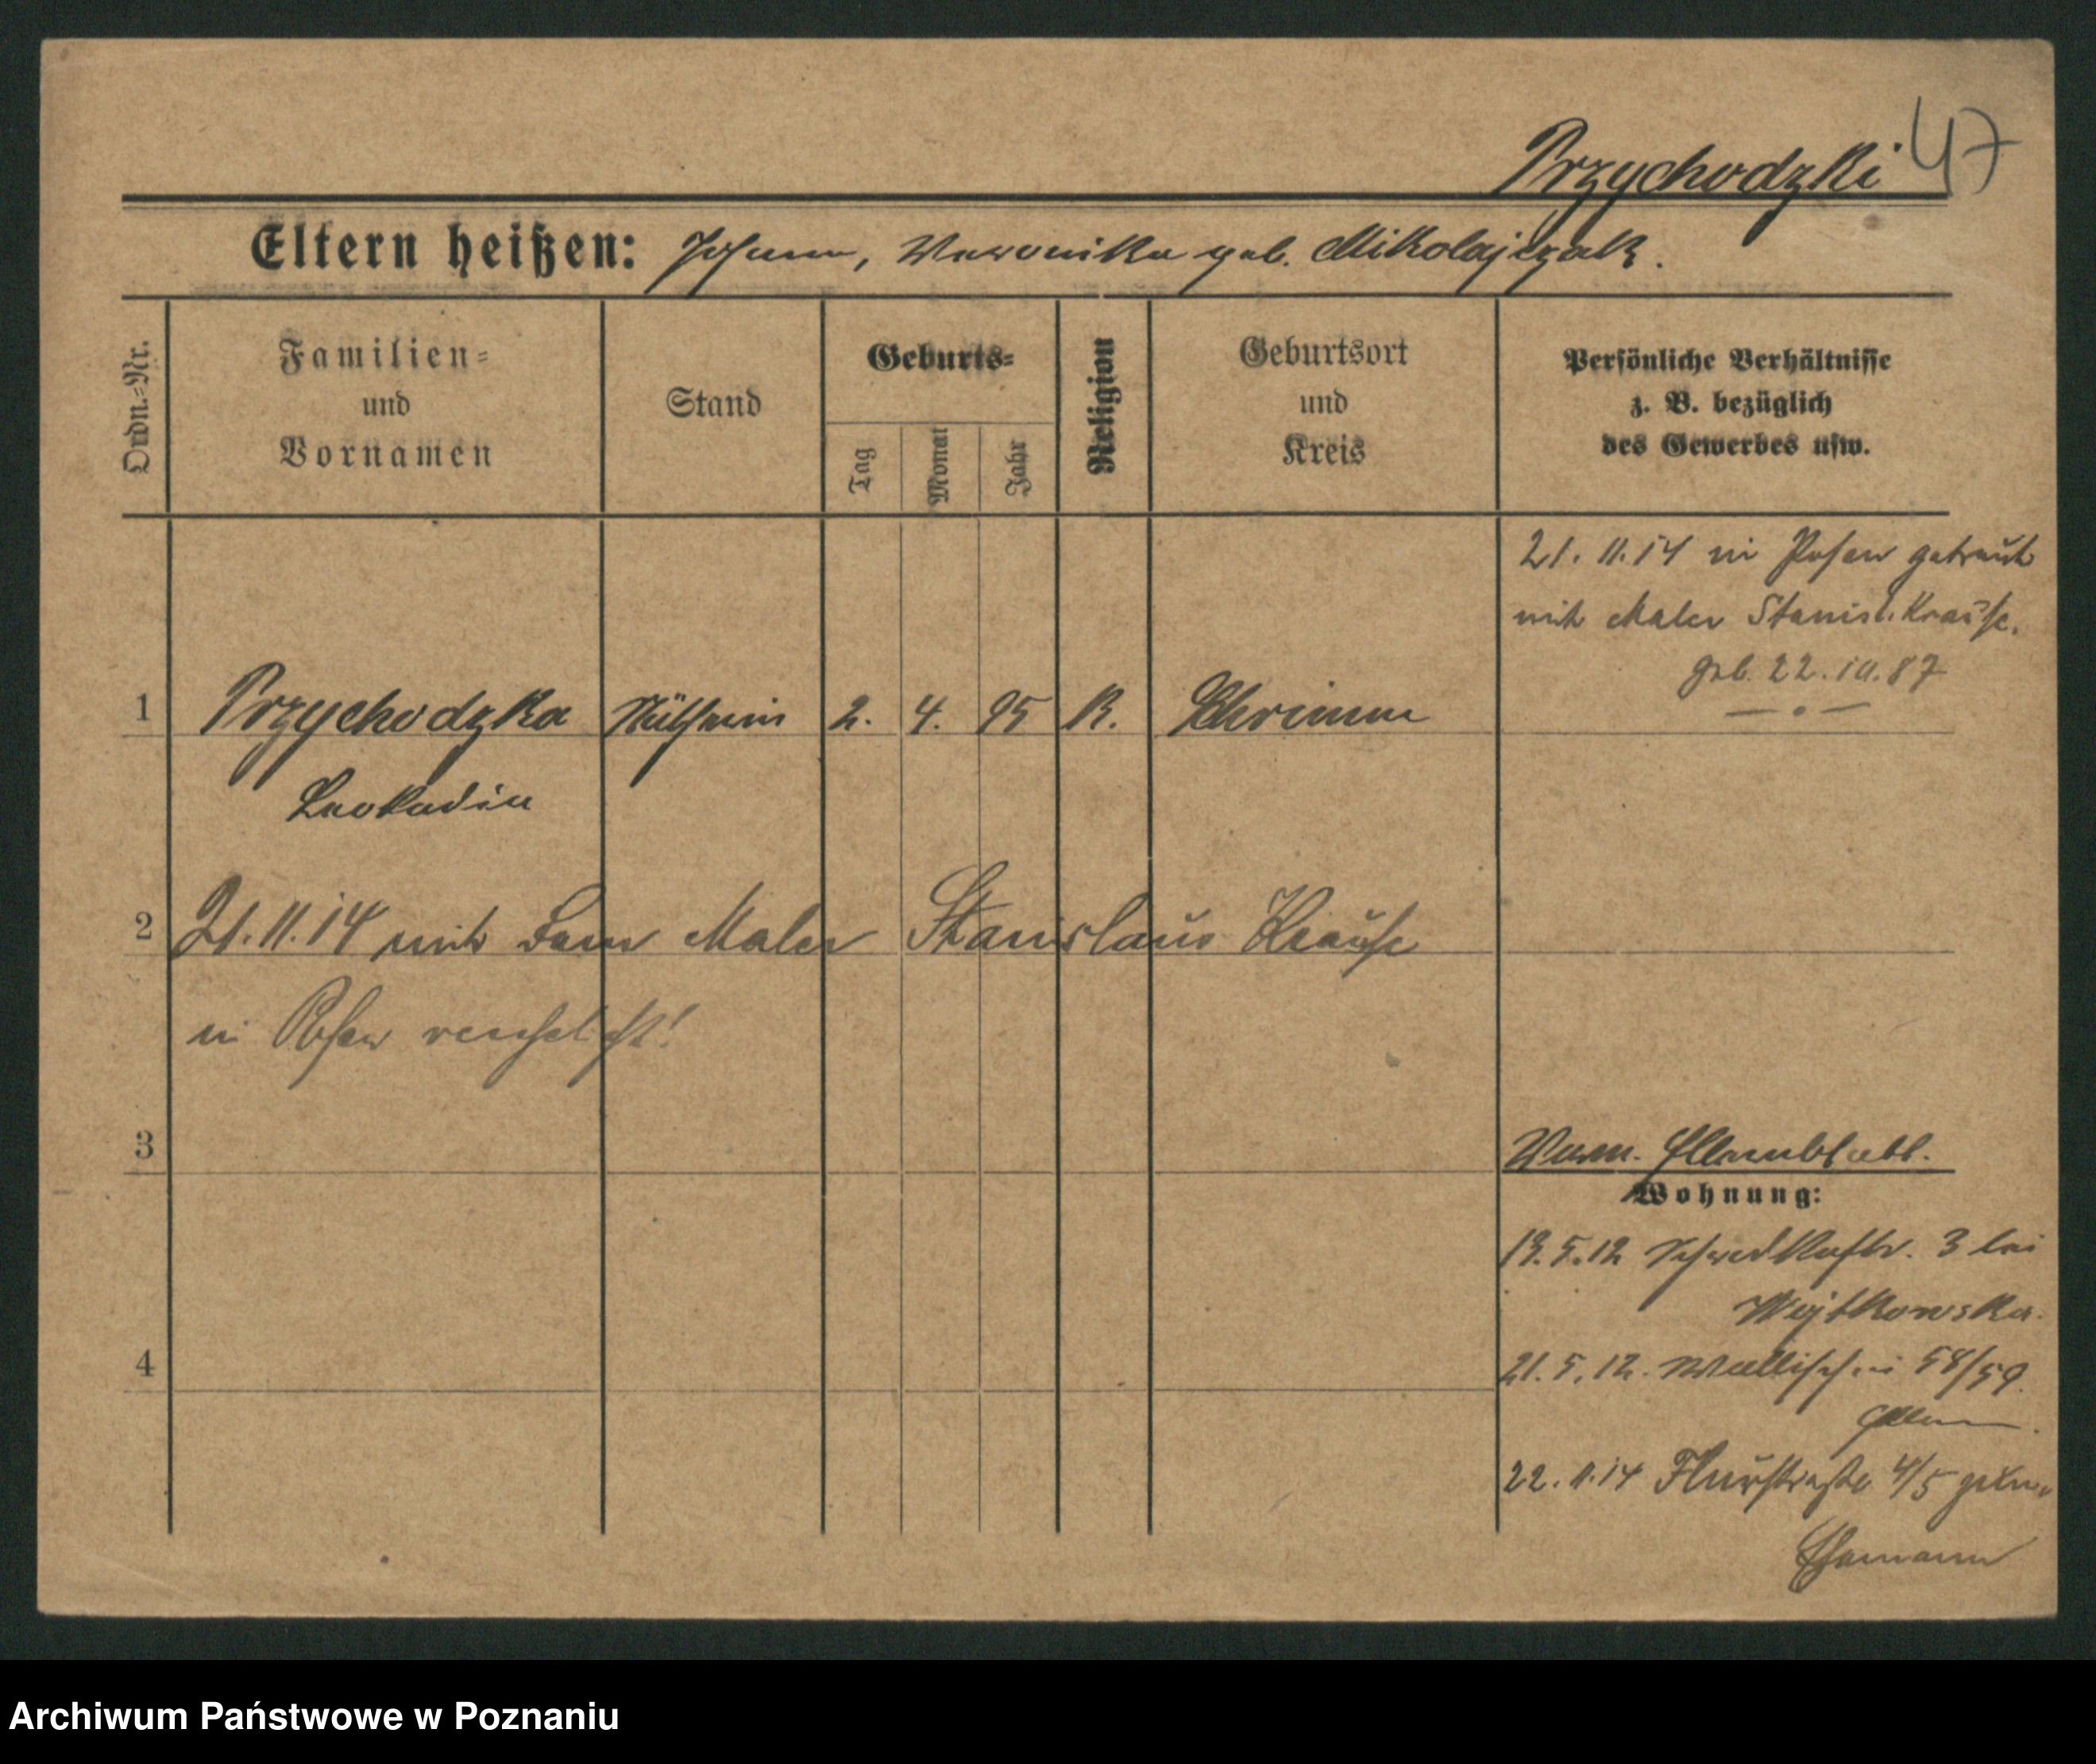 Przychodzki 47
Eltern heißen: Johann, Veronika geb. Mikolajczak.
Ordn.=Nr.
Familien=
und
Vornamen
Stand
Geburts=
Tag
Monat
Jahr
Religion
Geburtsort
und
Kreis
Persönliche Verhältnisse
z. B. bezüglich
des Gewerbes usw.
21. 11. 14 in Posen getraut
mit Maler Stanisl. Krause.
geb. 22. 10. 87
1 Przychodzka Näherin 2. 4. 95 K. Schrimm
Leokadia
2 21. 11. 14 mit dem Maler Stanislaus Krause
in Posen verehelicht!
3
Wohnung:
19. 5. 12 3 bei
Wojtkowska.
4
21. 5. 12. Wallischei 58/59.
Eltern.
22. 11. 14 Flurstraße 4/5
Ehemann